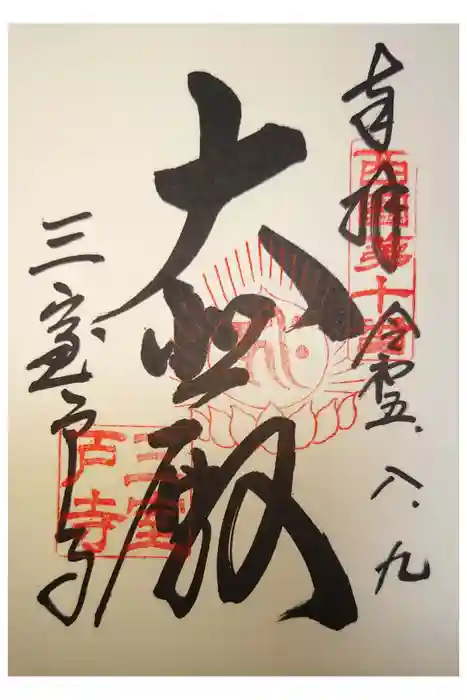 奉拝 令和五.八.九
西國第十番
大悲殿
三室戸寺
三室
戸寺